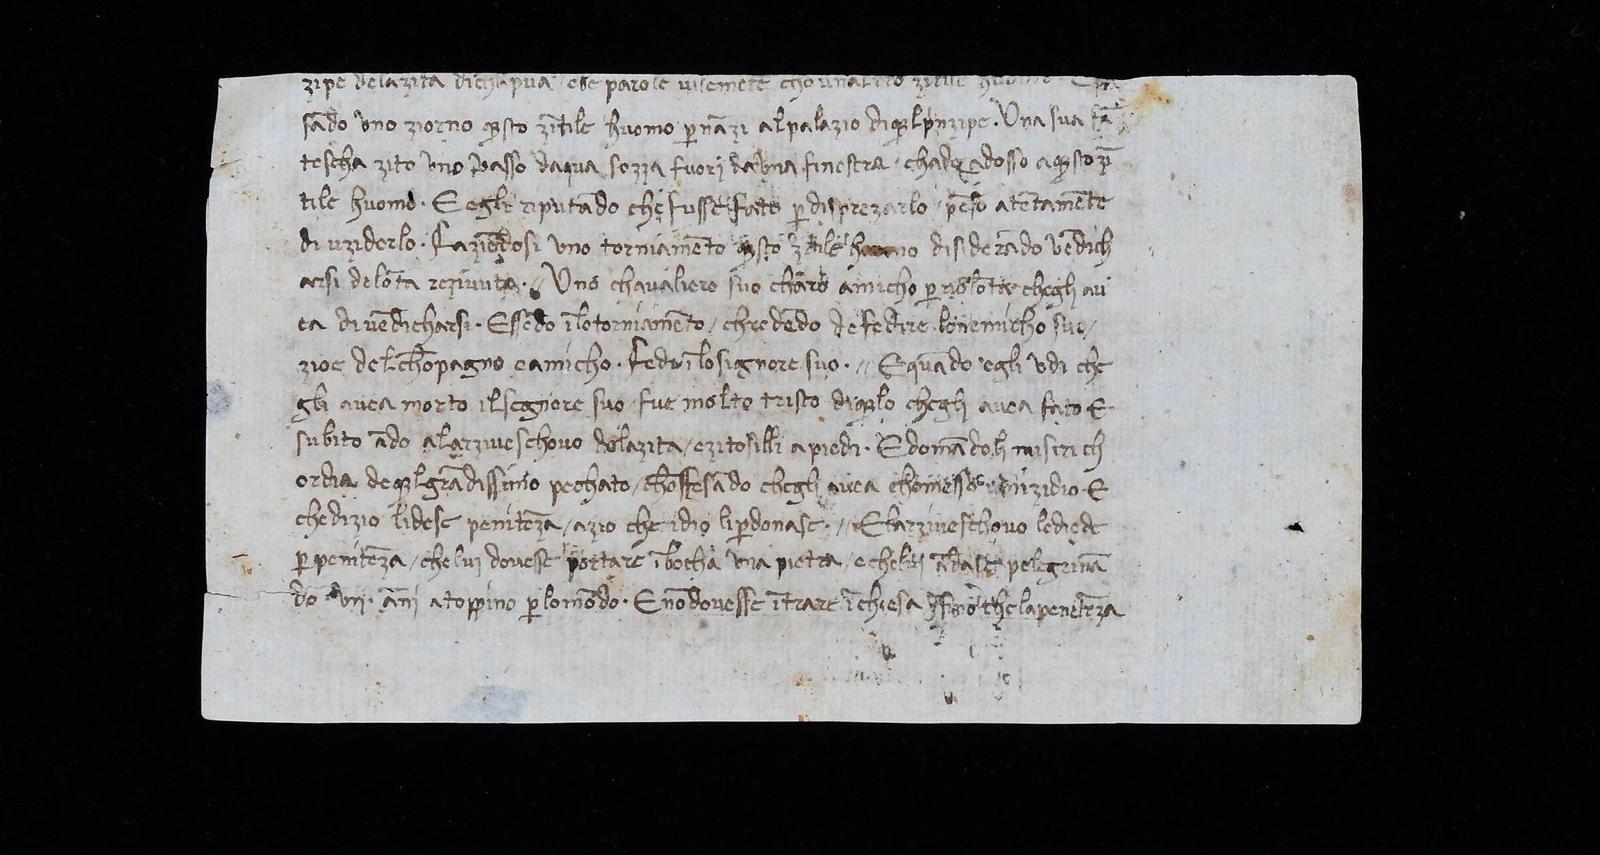 zipe delazita dichapua ese parole
sādo vno ziorno qͣsto zētile huomo ꝑ nāzi alpalazio diqͣlprīzipe. Vna sua fā
tescha zito vno vasso daqua sozza fuorj da vna finestra / chadē adosso aqͣsto zē
tile huomo. E egli riputādo che fusse fato ꝑ disprezarlo / pēsò atētamēte
di uziderlo. Faziēdosi vno torniamēto qͣsto zētile huomo disiderādo vēdich
arsi delōta rezivuta. // Vno chavaliere suo charo amicho ꝑ volōta chegli avi
ea di vēdicharsi. Essēdo ī lo torniamēto / chredēdo de fedire lo nemicho suo /
zioe del chōpagno e amicho. Fedi ilosignore suo. // E quādo egli vdi che
gli avea morto il segnore suo / fue molto tristo diqͣlo chegli avea fato E
subito ādo alarziveschovo delazita / e zitosilli apiedi. E domādoli miserich
ordia de qͣl grādissimo pechato / chōfesādo chegli avea chomesso omizidio. E
chedizio lidese penitēza / azio che idio li ꝑdonase. // E larziveschovo lediede
ꝑ penitēza / che luj dovesse portare ī bocha vna pietra / e chelui ādase pelegrinā
do vij. ānj atoppino ꝑ lo mōdo. E nō dovesse ītrare ī chiesa īfino che la penetēza